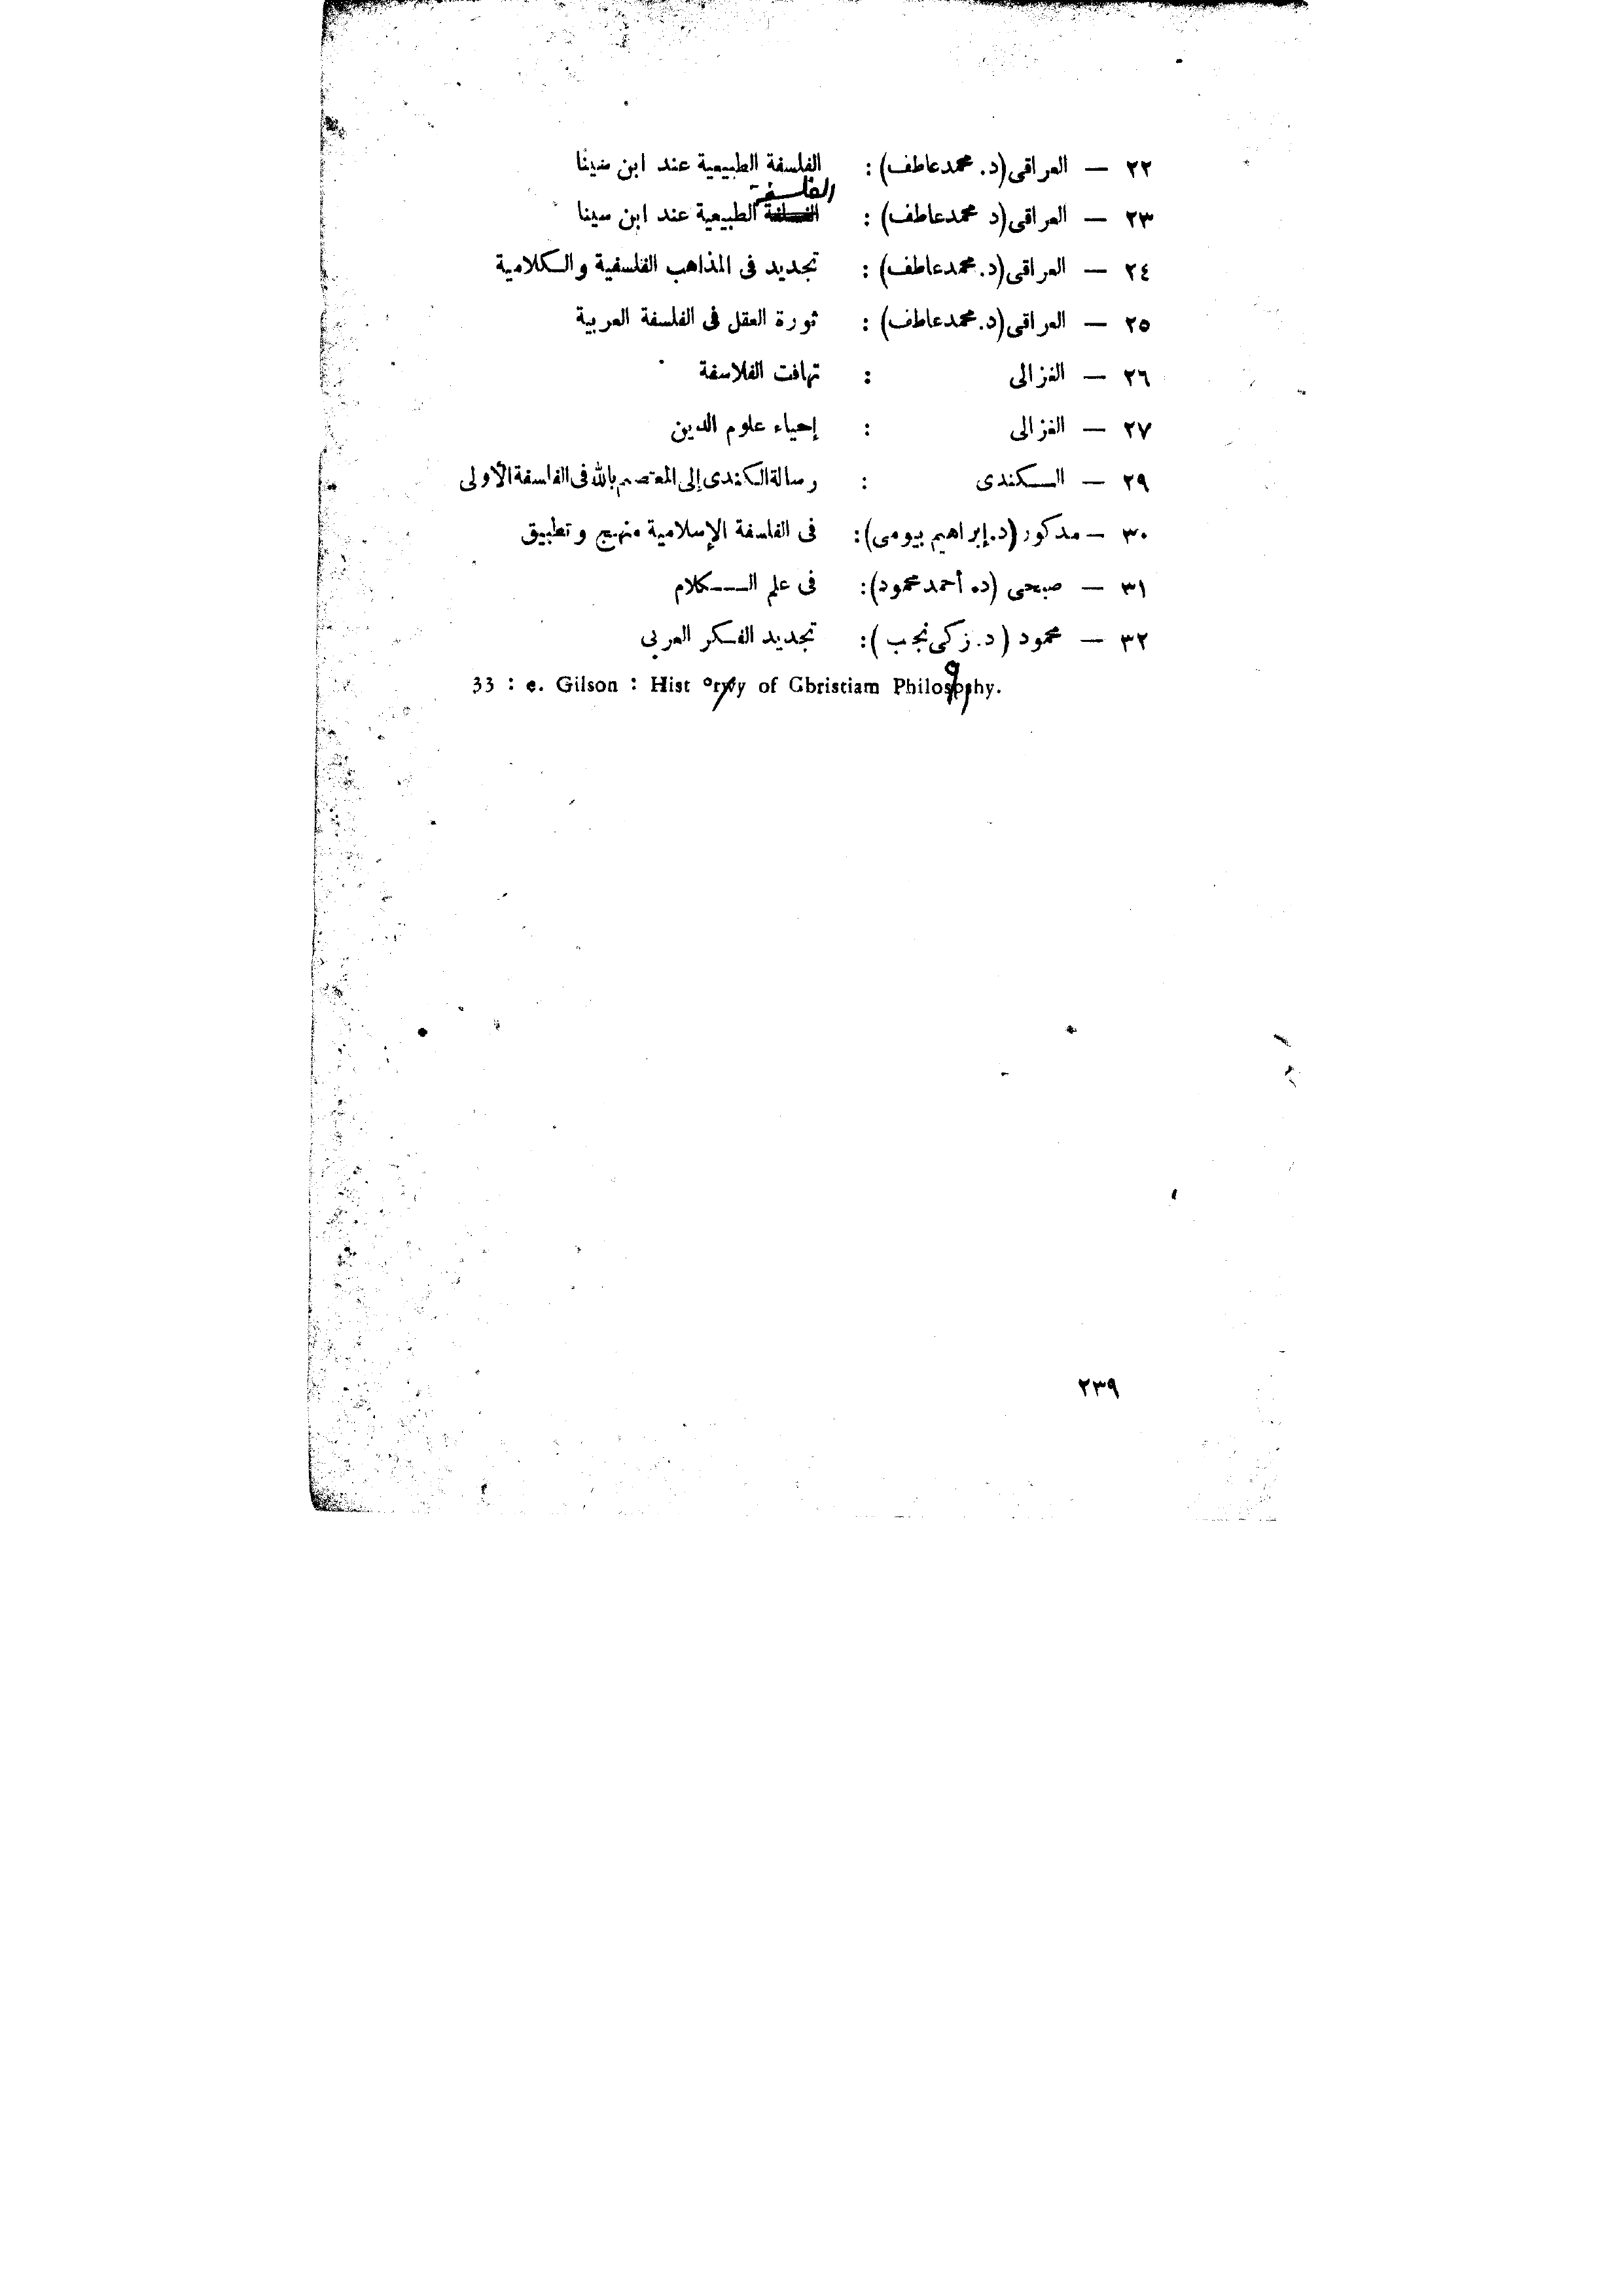 ٢٢ — العراقى (د. محمد عاطف) : الفلسفة الطبيعية عند ابن سينا
الفلسفة
٢٣ — العراقى (د محمد عاطف) : الطبيعية عند ابن سينا
٢٤ — العراقى (د. محمد عاطف) : تجديد فى المذاهب الفلسفية والكلامية
٢٥ — العراقى (د. محمد عاطف) : ثورة العقل فى الفلسفة العربية
٢٦ — الغزالى : تهافت الفلاسفة
٢٧ — الغزالى : إحياء علوم الدين
٢٩ — الكندى : رسالة الكندى إلى المعتصم بالله فى الفلسفة الأولى
٣٠ — مدكور (د. إبراهيم بيومى) : فى الفلسفة الإسلامية منهج وتطبيق
٣١ — صبحى (د. أحمد محمود) : فى علم الكلام
٣٢ — محمود (د. زكى نجب) : تجديد الفكر العربى
33 : e. Gilson : Hist ory of Gbristiam Philosophy.
٢٣٩